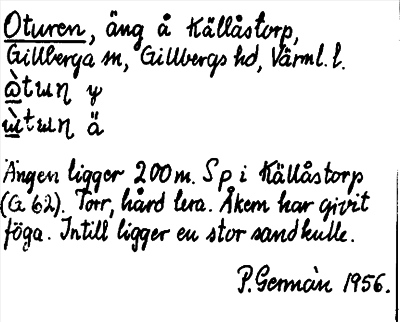 Oturen, äng å Källåstorp,
Gillberga sn, Gillbergs hd, Värml. l.
ù̀tɯn y
ɯ̀tɯn ä
Ängen ligger 200 m. S p i Källåstorp
(G 62). Torr, hård lera. Åkern har givit
föga. Intill ligger en stor sandkulle.
P. Germàn 1956.